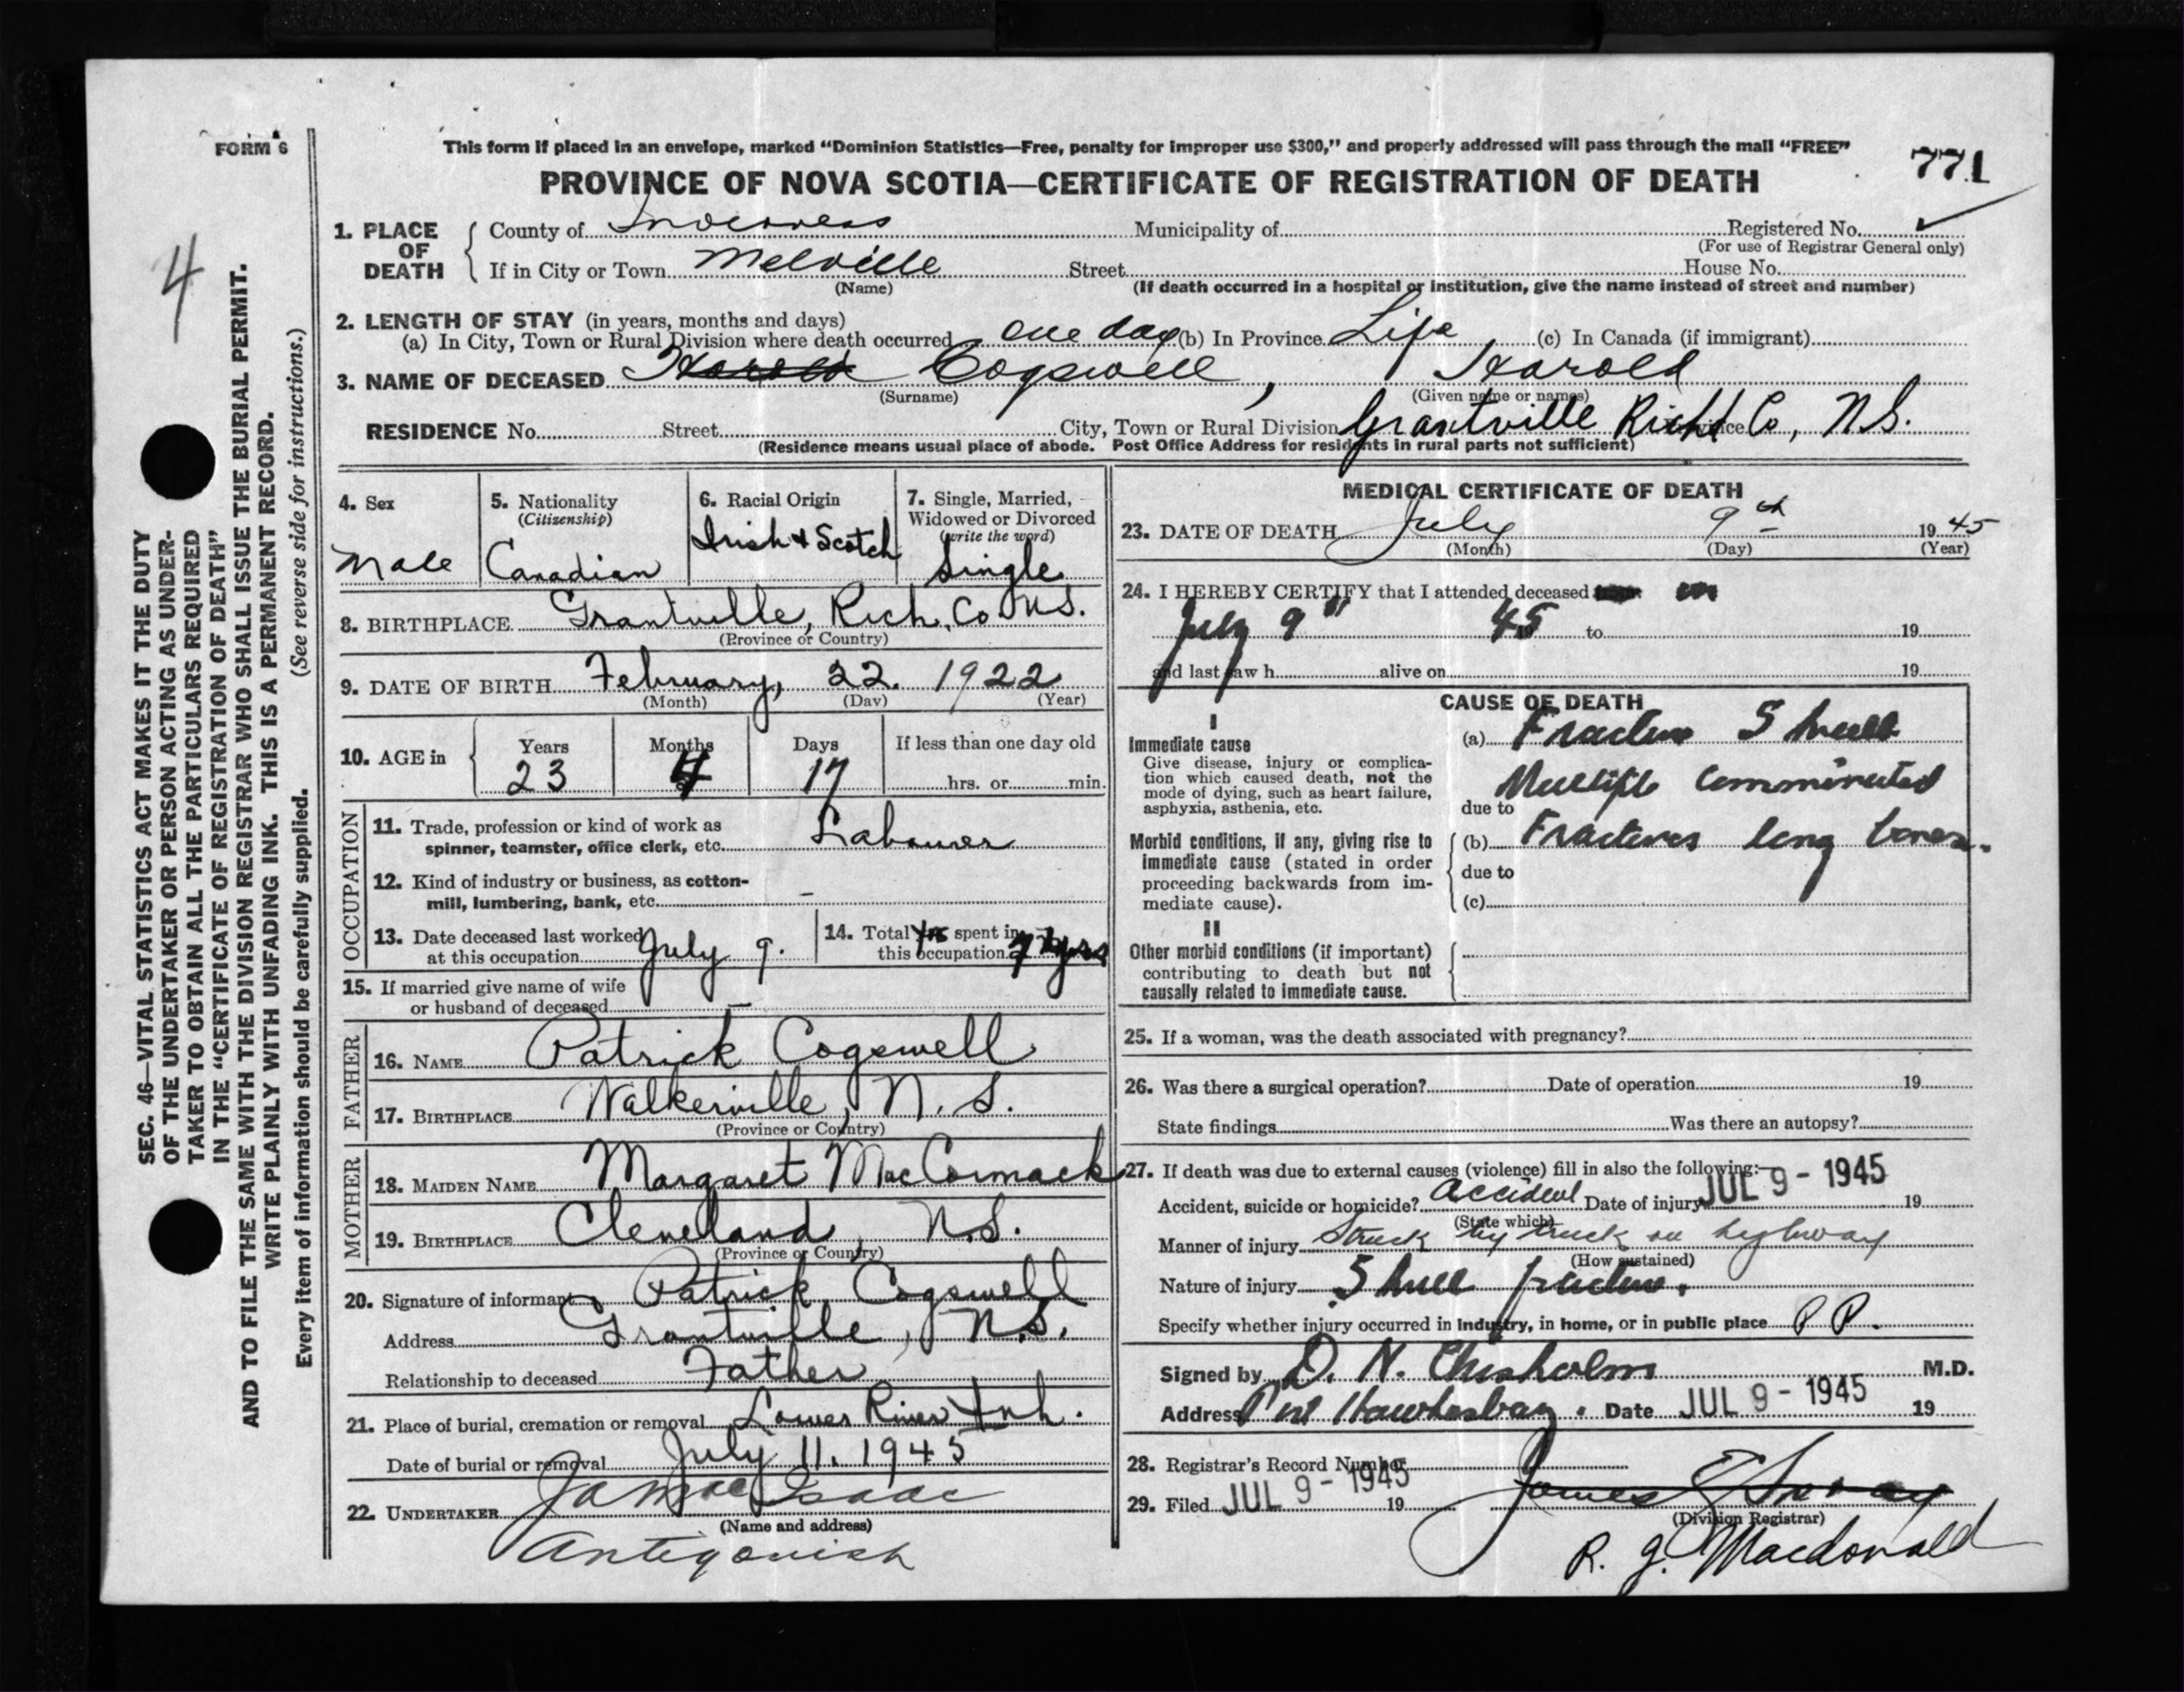 FORM 6
This form if placed in an envelope, marked “Dominion Statistics—Free, penalty for improper use $300,” and properly addressed will pass through the mail “FREE”
771
PROVINCE OF NOVA SCOTIA—CERTIFICATE OF REGISTRATION OF DEATH
4
SEC. 46—VITAL STATISTICS ACT MAKES IT THE DUTY
OF THE UNDERTAKER OR PERSON ACTING AS UNDER-
TAKER TO OBTAIN ALL THE PARTICULARS REQUIRED
IN THE “CERTIFICATE OF REGISTRATION OF DEATH”
AND TO FILE THE SAME WITH THE DIVISION REGISTRAR WHO SHALL ISSUE THE BURIAL PERMIT.
WRITE PLAINLY WITH UNFADING INK. THIS IS A PERMANENT RECORD.
Every item of information should be carefully supplied. (See reverse side for instructions.)
1. PLACE OF DEATH
County of Inverness Municipality of Registered No.
(For use of Registrar General only)
If in City or Town Melville Street House No.
(Name) (If death occurred in a hospital or institution, give the name instead of street and number)
2. LENGTH OF STAY (in years, months and days)
(a) In City, Town or Rural Division where death occurred one day (b) In Province Life (c) In Canada (if immigrant)
3. NAME OF DECEASED Harold Cogswell, Harold
(Surname) (Given name or names)
RESIDENCE No. Street City, Town or Rural Division Grantville Richd Co, N.S.
(Residence means usual place of abode. Post Office Address for residents in rural parts not sufficient)
4. Sex
Male
5. Nationality
(Citizenship)
Canadian
6. Racial Origin
Irish + Scotch
7. Single, Married,
Widowed or Divorced
(write the word)
Single
8. BIRTHPLACE Grantville, Rich. Co N.S.
(Province or Country)
9. DATE OF BIRTH February, 22. 1922
(Month) (Day) (Year)
10. AGE in
Years Months Days If less than one day old
23 4 17 hrs. or min.
OCCUPATION
11. Trade, profession or kind of work as
spinner, teamster, office clerk, etc. Labourer
12. Kind of industry or business, as cotton-
mill, lumbering, bank, etc. –
13. Date deceased last worked
at this occupation July 9.
14. Total yrs spent in
this occupation 7 yrs
15. If married give name of wife
or husband of deceased —
FATHER
16. NAME Patrick Cogswell
17. BIRTHPLACE Walkerville, N.S.
(Province or Country)
MOTHER
18. MAIDEN NAME Margaret MacCormack
19. BIRTHPLACE Cleveland, N.S.
(Province or Country)
20. Signature of informant Patrick Cogswell
Address Grantville, N.S.
Relationship to deceased Father
21. Place of burial, cremation or removal Lower River Inh.
Date of burial or removal July 11. 1945
22. UNDERTAKER MacIsaac
(Name and address)
Antigonish
MEDICAL CERTIFICATE OF DEATH
23. DATE OF DEATH July 9th 1945
(Month) (Day) (Year)
24. I HEREBY CERTIFY that I attended deceased on
July 9th 45 to 19
and last saw h alive on 19
CAUSE OF DEATH
I
Immediate cause
Give disease, injury or complica-
tion which caused death, not the
mode of dying, such as heart failure,
asphyxia, asthenia, etc.
(a) Fracture Skull
Multiple Comminuted
due to
Morbid conditions, if any, giving rise to
immediate cause (stated in order
proceeding backwards from im-
mediate cause).
(b) Fractures long bones.
due to
(c)
II
Other morbid conditions (if important)
contributing to death but not
causally related to immediate cause.
25. If a woman, was the death associated with pregnancy?
26. Was there a surgical operation? Date of operation 19
State findings Was there an autopsy?
27. If death was due to external causes (violence) fill in also the following:—
Accident, suicide or homicide? accident Date of injury JUL 9 - 1945 19
(State which)
Manner of injury Struck by truck on highway
(How sustained)
Nature of injury Skull fracture.
Specify whether injury occurred in industry, in home, or in public place P P.
Signed by D. N. Chisholm M.D.
Address Port Hawkesbury. Date JUL 9 - 1945 19
28. Registrar's Record Number
29. Filed JUL 9 - 1945 19 James
(Division Registrar)
R. J. Macdonald